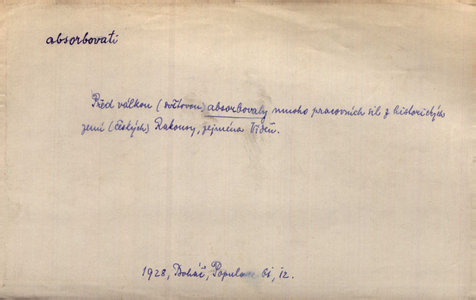 absorbovati
Před válkou (světovou) absorbovaly mnoho pracovních sil z historických
zemí (českých) Rakousy, zejména Vídeň.
1928, Boháč, Popul